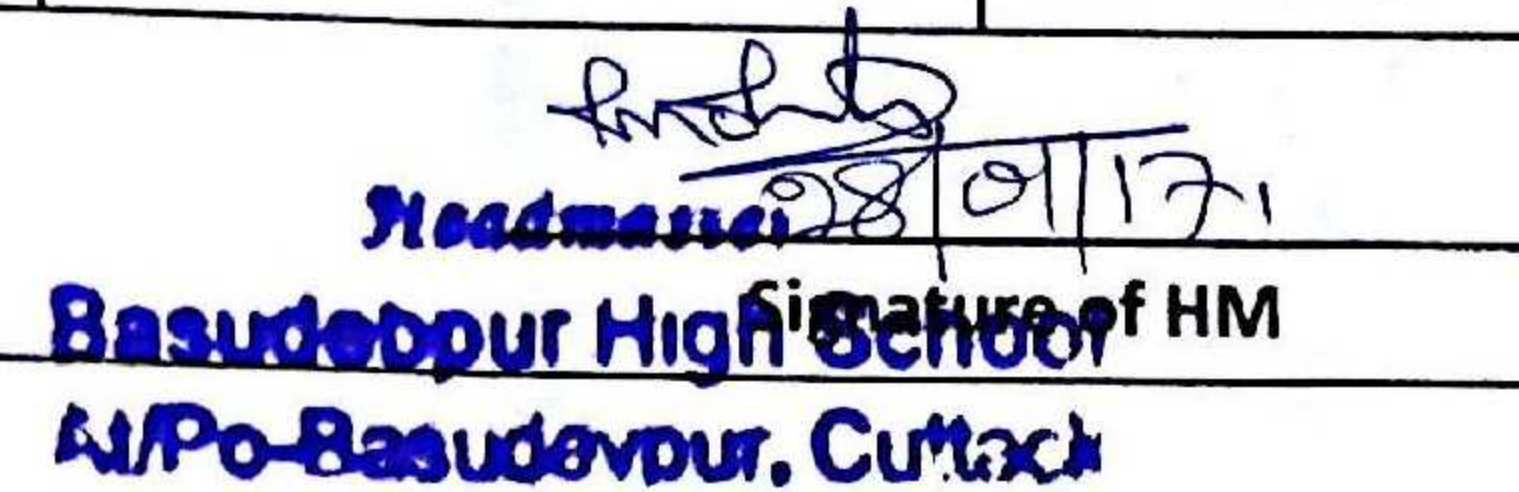 28/01/17.
Headmaster
Signature of HM
Basudebpur High School
At/Po-Basudevpur. Cuttack